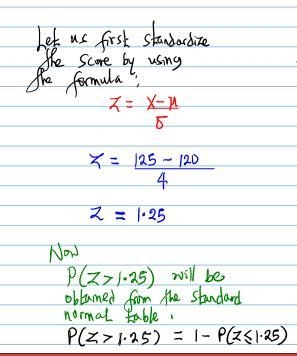 Let us first standardize
the score by using
the formula:
Z = X-μ
σ
Z = 125 - 120
4
Z = 1.25
Now
P(Z > 1.25) will be
obtained from the standard
normal table.
P(Z > 1.25) = 1 - P(Z ≤ 1.25)